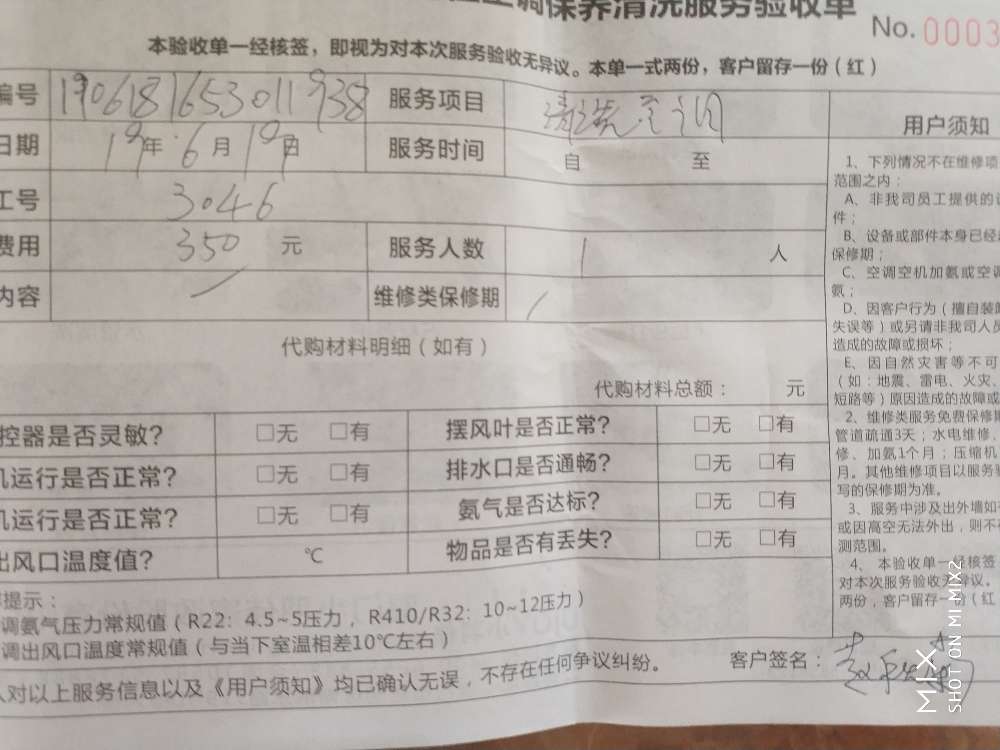 空调保养清洗服务验收单
No. 0003
本验收单一经核签，即视为对本次服务验收无异议。本单一式两份，客户留存一份（红）
编号 1906181653011938 服务项目 清洗空调
日期 19年 6月 19日 服务时间 自 至
工号 3046
费用 350 元 服务人数 1 人
内容 / 维修类保修期 /
代购材料明细（如有）
代购材料总额： 元
控器是否灵敏? □无 □有 摆风叶是否正常? □无 □有
机运行是否正常? □无 □有 排水口是否通畅? □无 □有
机运行是否正常? □无 □有 氨气是否达标? □无 □有
出风口温度值? ℃ 物品是否有丢失? □无 □有
提示：
调氨气压力常规值（R22：4.5~5压力， R410/R32：10~12压力）
调出风口温度常规值（与当下室温相差10℃左右）
人对以上服务信息以及《用户须知》均已确认无误，不存在任何争议纠纷。
客户签名：
用户须知
1、下列情况不在维修项
范围之内：
A、非我司员工提供的
件；
B、设备或部件本身已经
保修期；
C、空调空机加氨或空调
氨；
D、因客户行为（擅自装
失误等）或另请非我司人员
造成的故障或损坏；
E、因自然灾害等不可
（如：地震、雷电、火灾、
短路等）原因造成的故障或
2、维修类服务免费保修
管道疏通3天；水电维修、
修、加氨1个月；压缩机
月。其他维修项目以服务
写的保修期为准。
3、服务中涉及出外墙如
或因高空无法外出，则不
测范围。
4、本验收单一经核签
对本次服务验收无异议。
两份，客户留存一份（红
MIX
SHOT ON MI MIX2